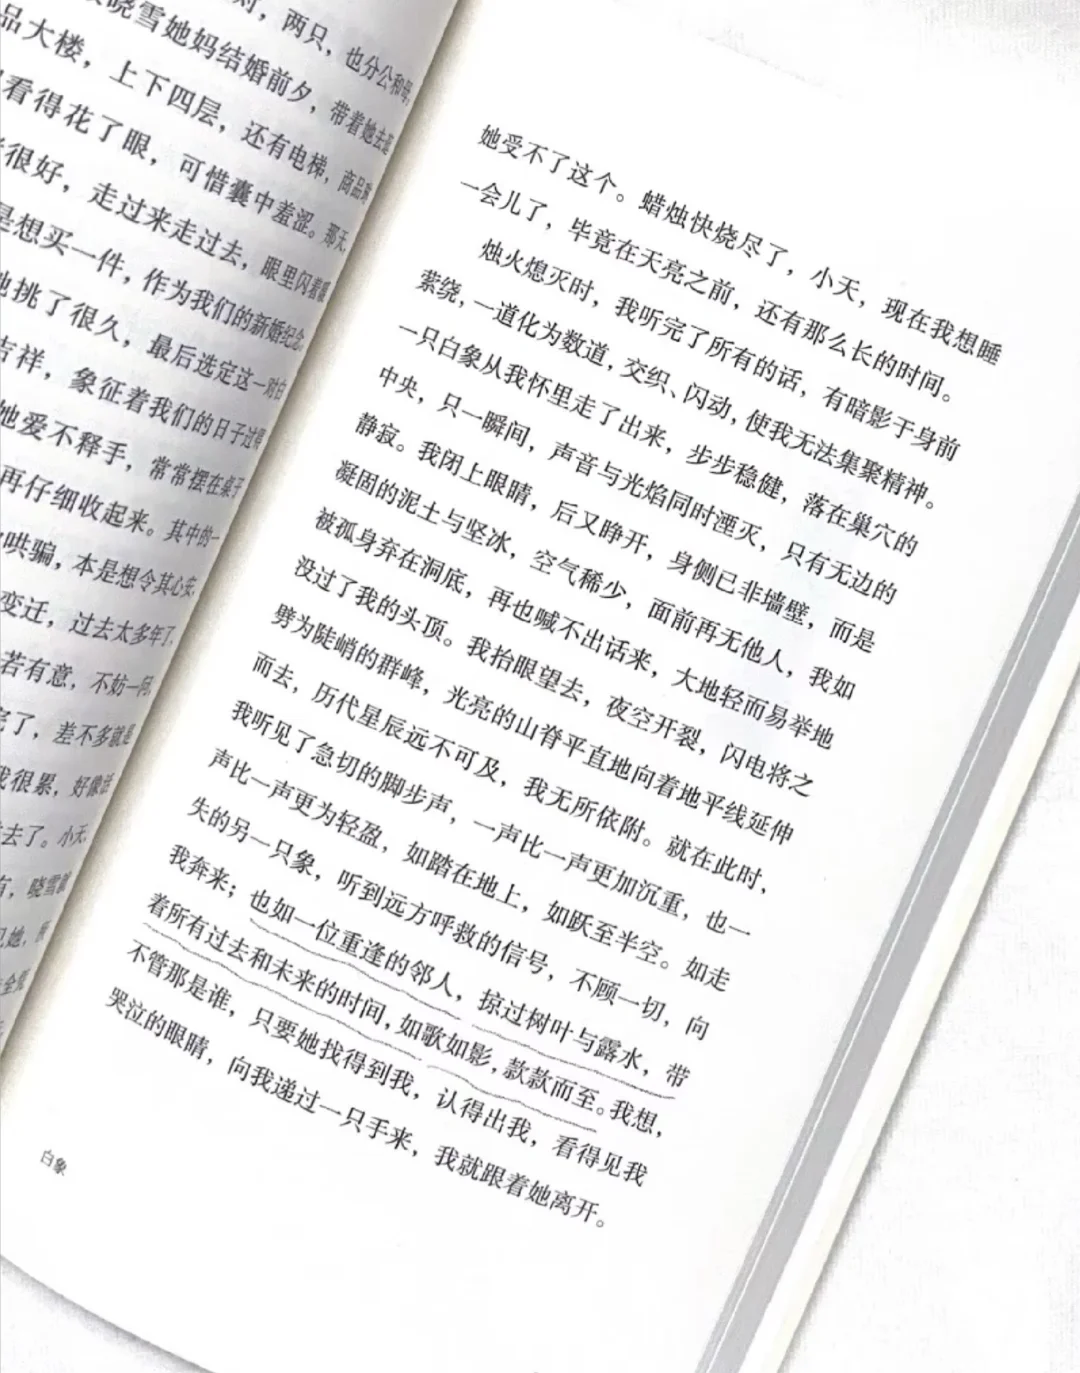 对，两只，也分公和母，
晓雪她妈结婚前夕，带着她去逛
品大楼，上下四层，还有电梯，商品
看得花了眼，可惜囊中羞涩。那天，
很好，走过来走过去，眼里闪着
是想买一件，作为我们的新婚纪念。
她挑了很久，最后选定这一对白
吉祥，象征着我们的日子过得
她爱不释手，常常摆在桌子
再仔细收起来。其中的一
哄骗，本是想令其心安，
变迁，过去太多年了，
若有意，不妨一问。
完了，差不多就是
我很累，好像话
去了。小天，
有，晓雪就
见她，
全
她受不了这个。蜡烛快烧尽了，小天，现在我想睡
一会儿了，毕竟在天亮之前，还有那么长的时间。
烛火熄灭时，我听完了所有的话，有暗影于身前
萦绕，一道化为数道，交织、闪动，使我无法集聚精神。
一只白象从我怀里走了出来，步步稳健，落在巢穴的
中央，只一瞬间，声音与光焰同时湮灭，只有无边的
静寂。我闭上眼睛，后又睁开，身侧已非墙壁，而是
凝固的泥土与坚冰，空气稀少，面前再无他人，我如
被孤身弃在洞底，再也喊不出话来，大地轻而易举地
没过了我的头顶。我抬眼望去，夜空开裂，闪电将之
劈为陡峭的群峰，光亮的山脊平直地向着地平线延伸
而去，历代星辰远不可及，我无所依附。就在此时，
我听见了急切的脚步声，一声比一声更加沉重，也一
声比一声更为轻盈，如踏在地上，如跃至半空。如走
失的另一只象，听到远方呼救的信号，不顾一切，向
我奔来；也如一位重逢的邻人，掠过树叶与露水，带
着所有过去和未来的时间，如歌如影，款款而至。我想，
不管那是谁，只要她找得到我，认得出我，看得见我
哭泣的眼睛，向我递过一只手来，我就跟着她离开。
白象